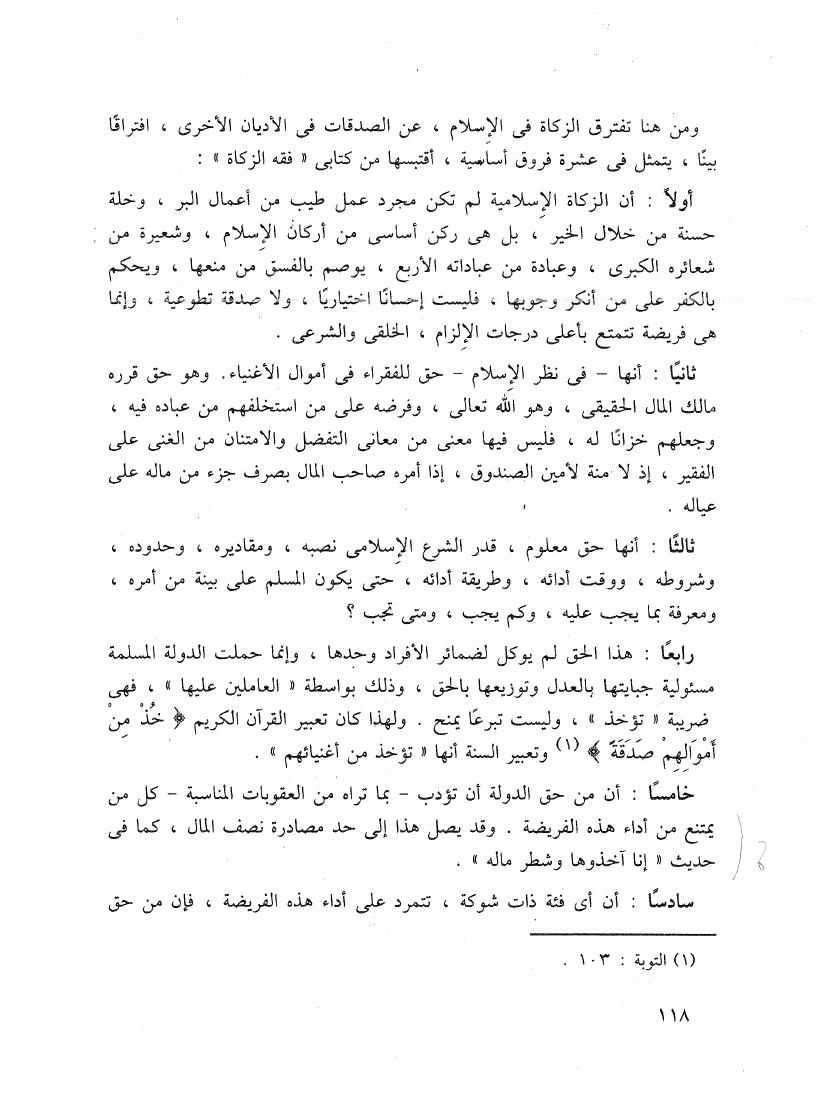 ومن هنا تفترق الزكاة فى الإسلام ، عن الصدقات فى الأديان الأخرى ، افتراقًا
بينًا ، يتمثل فى عشرة فروق أساسية ، أقتبسها من كتابى « فقه الزكاة » :
أولاً : أن الزكاة الإسلامية لم تكن مجرد عمل طيب من أعمال البر ، وخلة
حسنة من خلال الخير ، بل هى ركن أساسى من أركان الإسلام ، وشعيرة من
شعائره الكبرى ، وعبادة من عباداته الأربع ، يوصم بالفسق من منعها ، ويحكم
بالكفر على من أنكر وجوبها ، فليست إحسانًا اختياريًا ، ولا صدقة تطوعية ، وإنما
هى فريضة تتمتع بأعلى درجات الإلزام ، الخلقى والشرعى .
ثانيًا : أنها – فى نظر الإسلام – حق للفقراء فى أموال الأغنياء. وهو حق قرره
مالك المال الحقيقى ، وهو الله تعالى ، وفرضه على من استخلفهم من عباده فيه ،
وجعلهم خزانًا له ، فليس فيها معنى من معانى التفضل والامتنان من الغنى على
الفقير ، إذ لا منة لأمين الصندوق ، إذا أمره صاحب المال بصرف جزء من ماله على
عياله .
ثالثًا : أنها حق معلوم ، قدر الشرع الإسلامى نصبه ، ومقاديره ، وحدوده ،
وشروطه ، ووقت أدائه ، وطريقة أدائه ، حتى يكون المسلم على بينة من أمره ،
ومعرفة بما يجب عليه ، وكم يجب ، ومتى تجب ؟
رابعًا : هذا الحق لم يوكل لضمائر الأفراد وحدها ، وإنما حملت الدولة المسلمة
مسئولية جبايتها بالعدل وتوزيعها بالحق ، وذلك بواسطة « العاملين عليها » ، فهى
ضريبة « تؤخذ » ، وليست تبرعًا يمنح . ولهذا كان تعبير القرآن الكريم ﴿ خُذْ مِنْ
أَمْوَالِهِمْ صَدَقَةً ﴾ (١) وتعبير السنة أنها « تؤخذ من أغنيائهم » .
خامسًا : أن من حق الدولة أن تؤدب – بما تراه من العقوبات المناسبة – كل من
يمتنع من أداء هذه الفريضة . وقد يصل هذا إلى حد مصادرة نصف المال ، كما فى
حديث « إنا آخذوها وشطر ماله » .
سادسًا : أن أى فئة ذات شوكة ، تتمرد على أداء هذه الفريضة ، فإن من حق
(١) التوبة : ١٠٣ .
١١٨